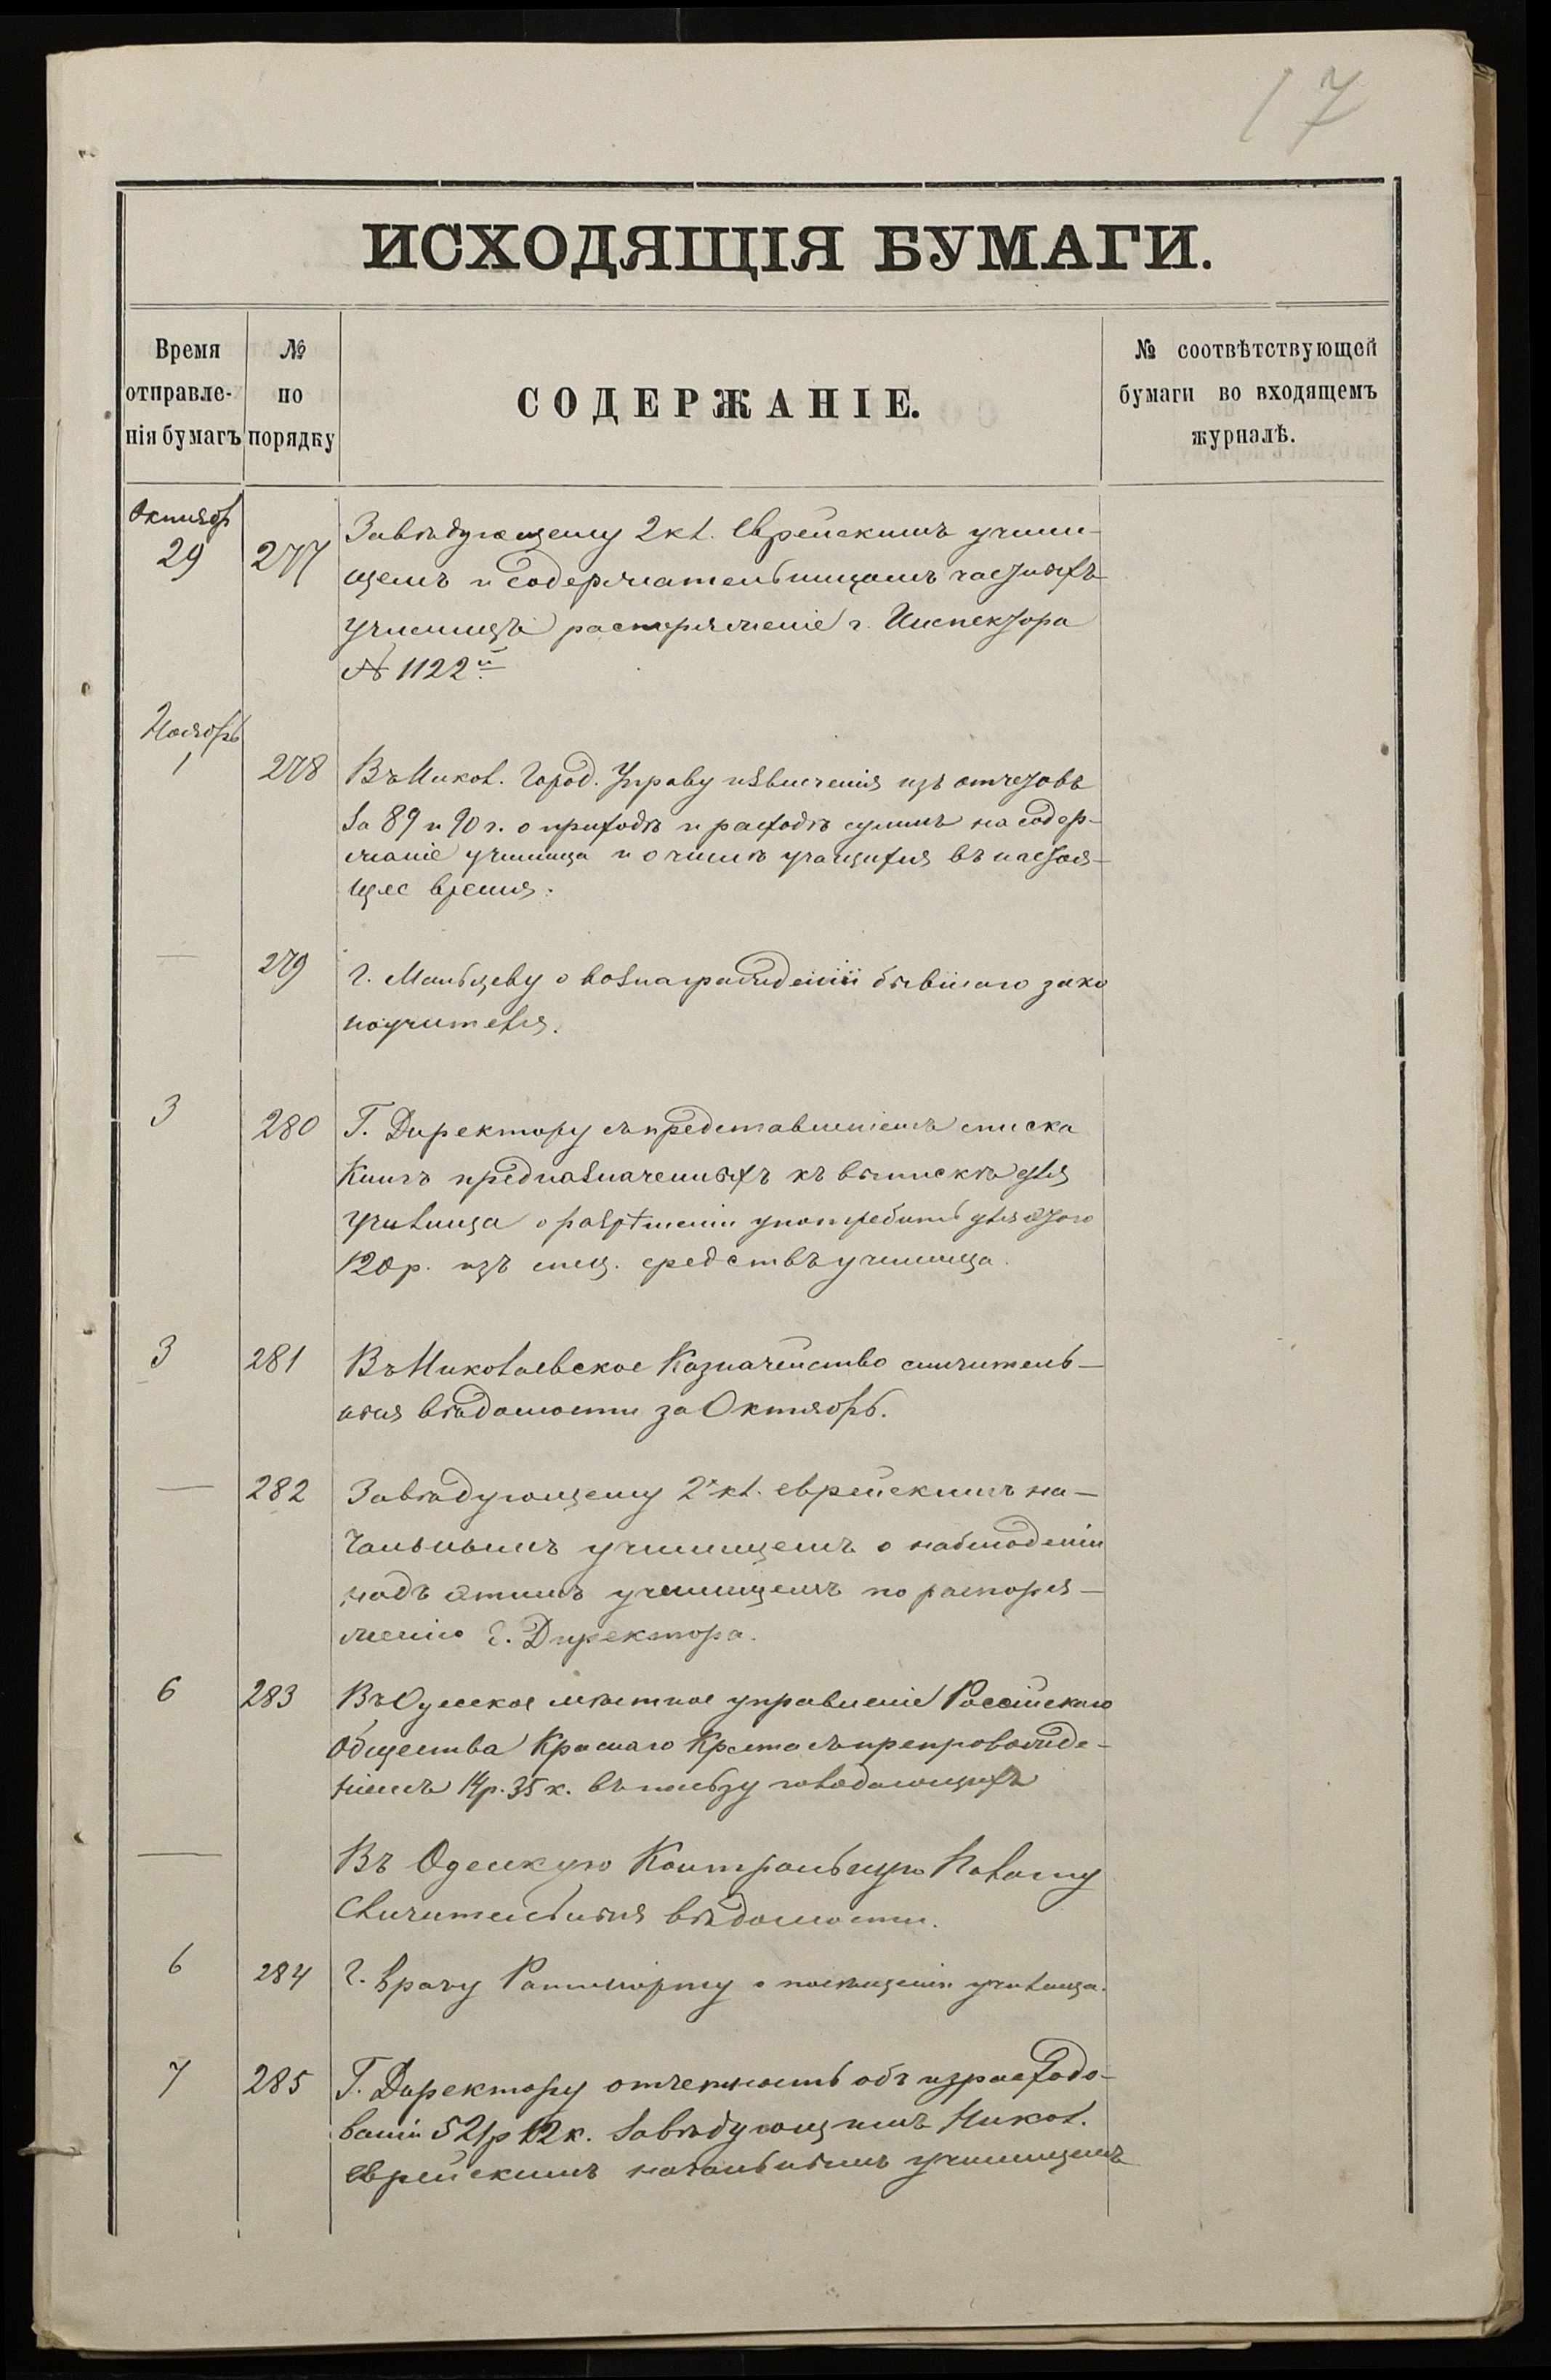 17
ИСХОДЯЩІЯ БУМАГИ.
Время отправле-нія бумагъ
№ по порядку
СОДЕРЖАНІЕ.
№ соотвѣтствующей бумаги во входящемъ журналѣ.
Октябрь
29 277 Завѣдующему 2 кл. Еврейскимъ учили-
щемъ и содержательницамъ частныхъ
училищъ распоряженіе г. Инспектора
№ 1122й
Ноябрь
1 278 Въ Никол. Город. Управу извлеченія изъ отчетовъ
за 89 и 90 г. о приходѣ и расходѣ суммъ на содер-
жаніе училища и о числѣ учащихся въ настоя-
щее время.
— 279 г. Мальцеву о вознагражденіи бывшаго зако
ноучителя.
3 280 Г. Директору съ представленіемъ списка
Книгъ предназначенныхъ къ выпискѣ для
училища о разрѣшеніи употребить для этого
120 р. изъ спец. средствъ училища.
3 281 Въ Николаевское Казначейство сличитель-
ныя вѣдомости за Октябрь.
— 282 Завѣдующему 2х кл. еврейскимъ на-
чальнымъ училищемъ о наблюденіи
надъ этимъ училищемъ по распоря-
женію г. Директора.
6 283 Въ Одесское мѣстное управленіе Россійскаго
Общества Краснаго Креста съ препровожде-
ніемъ 14 р. 35 к. въ пользу голодающихъ
— Въ Одесскую Контрольную Палату
Сличительныя вѣдомости.
6 284 г. Врачу о посѣщеніи училища.
7 285 Г. Директору отчетность объ израсходо-
ваніи 521 р 12 к. Завѣдующимъ Никол.
Еврейскимъ начальнымъ училищемъ